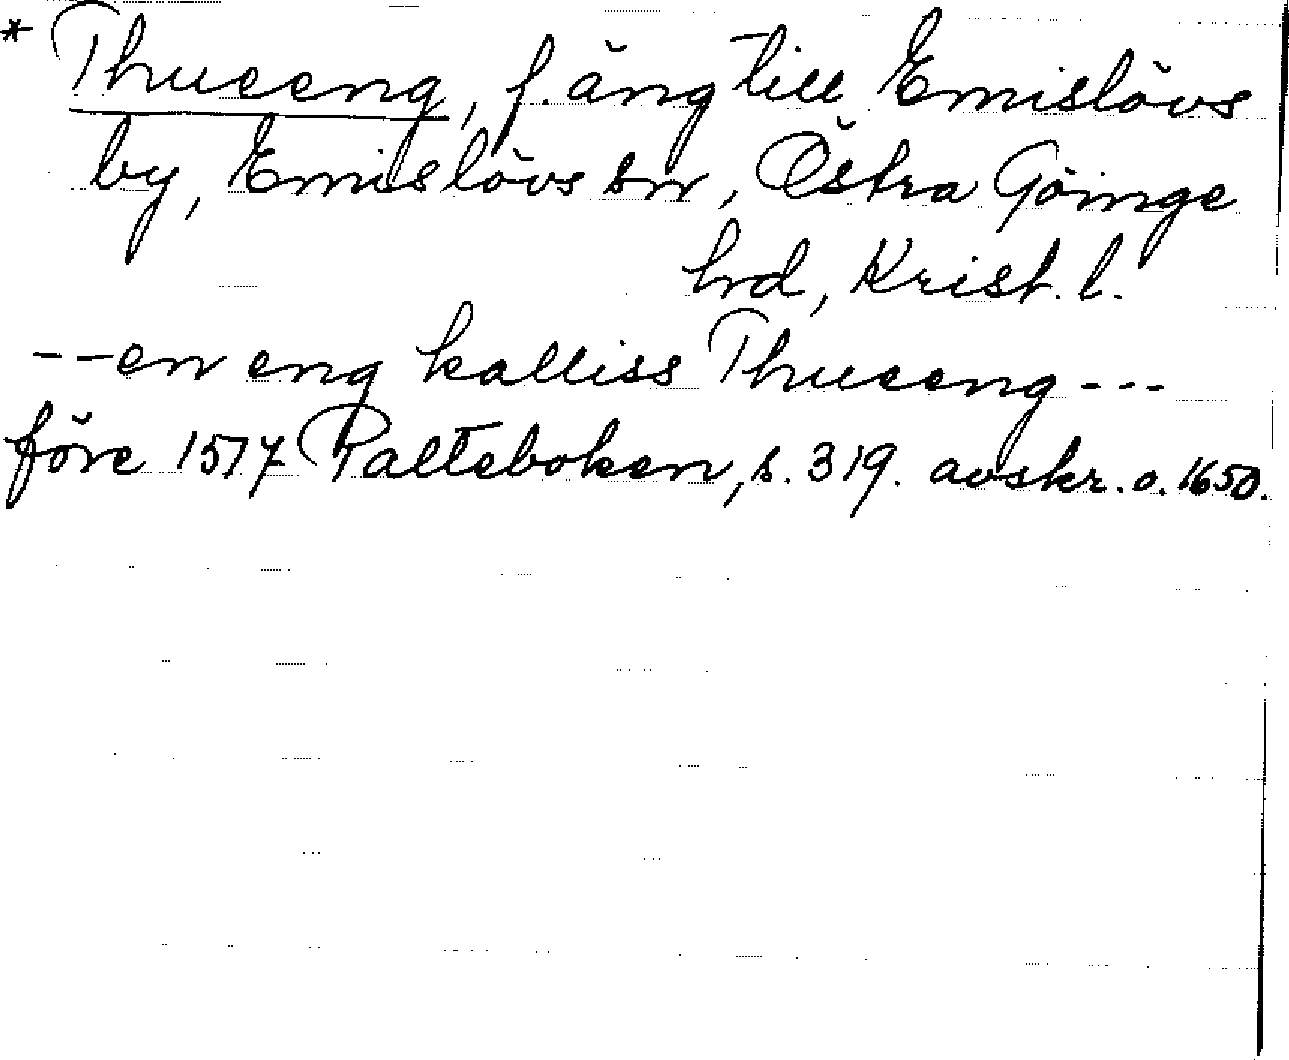 * Thueeng, f. äng till Emislövs
by, Emislövs sn, Östra Göinge
hrd, Krist. l.
--en eng kalliss Thueeng---
före 1517 Palteboken, s. 319. avskr. o. 1650.